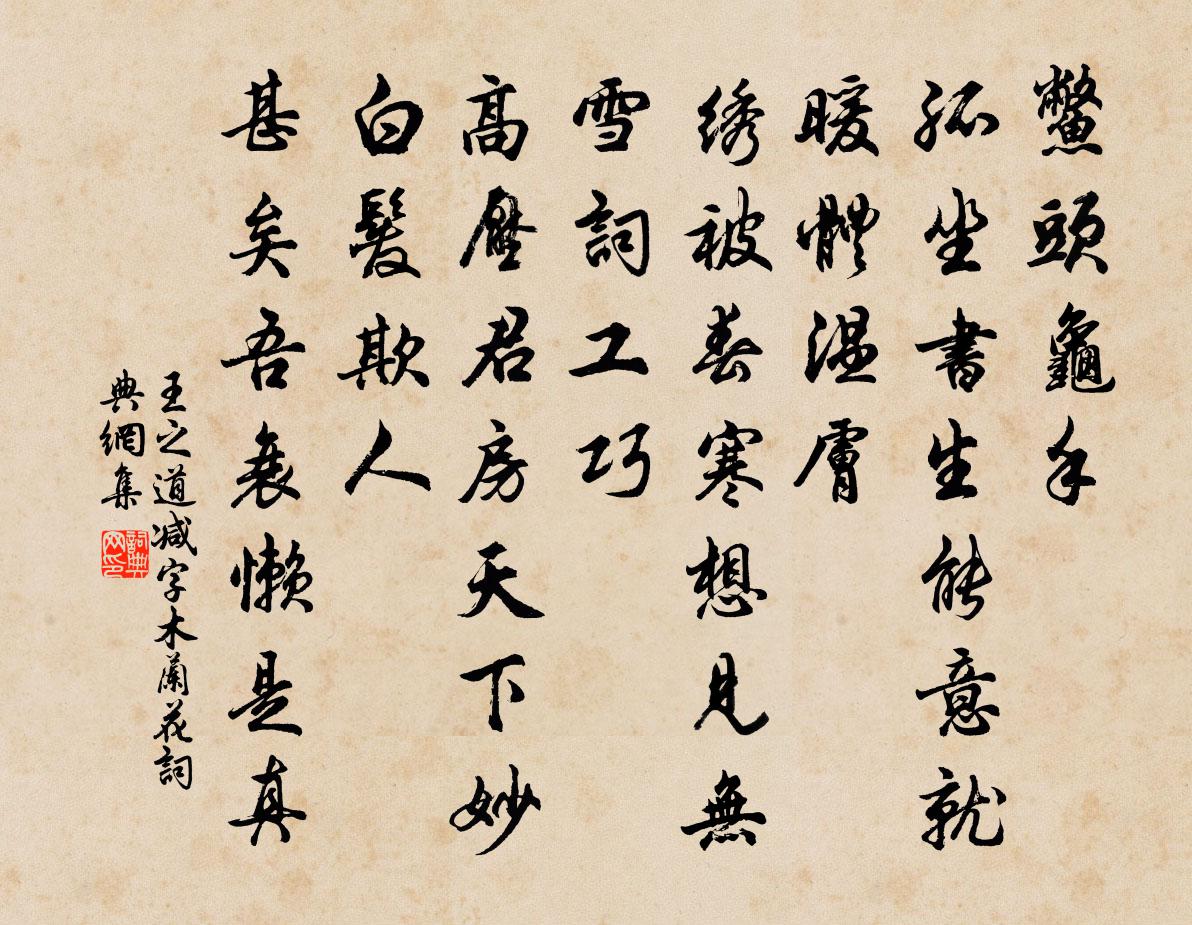 鱉頭龜手
孤坐書生能意就
暖體溫膚
绣被春寒想見無
雪詞工巧
高壓君房天下妙
白髮欺人
甚矣吾衰懒是真
王之道减字木蘭花詞
典網集
詞典网印